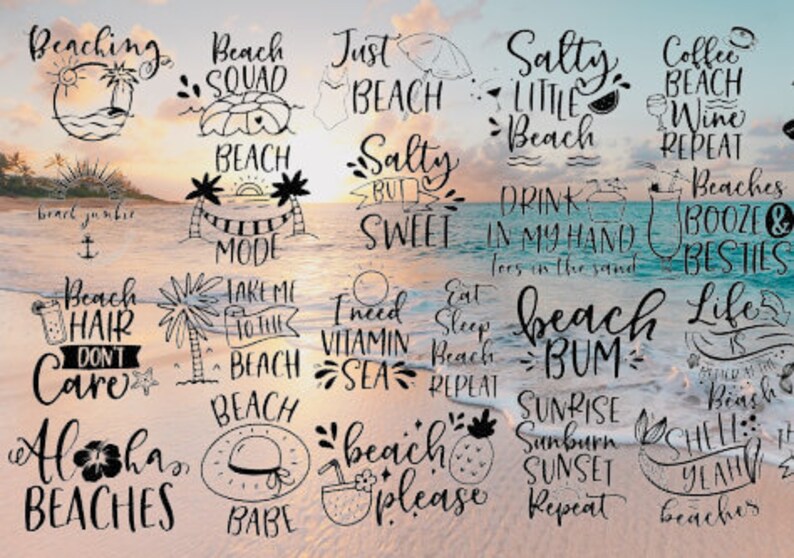 Beaching
Beach
SQUAD
Just
BEACH
Salty
LITTLE
Beach
Coffee
BEACH
Wine
REPEAT
beach junkie
BEACH
MODE
Salty
BUT
SWEET
DRINK
IN MY HAND
toes in the sand
Beaches
BOOZE &
BESTIES
Beach
HAIR
DON'T
Care
TAKE ME
TO THE
BEACH
I need
VITAMIN
SEA
Eat
Sleep
Beach
REPEAT
beach
BUM
Life
IS
BETTER AT THE
Beach
Aloha
BEACHES
BEACH
BABE
beach
please
SUNRISE
Sunburn
SUNSET
Repeat
SHELL
YEAH
beaches